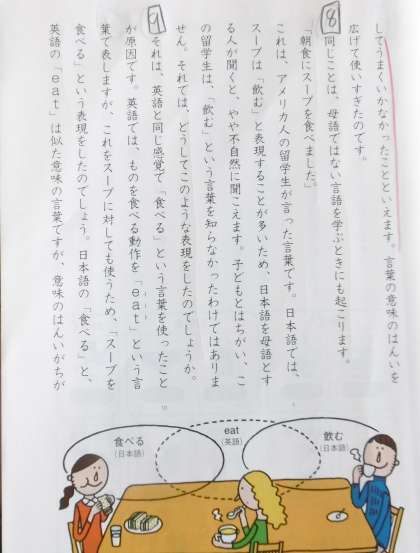 してうまくいかなかったことといえます。言葉の意味のはんいを
広げて使いすぎたのです。
8
同じことは、母語ではない言語を学ぶときにも起こります。
「朝食にスープを食べました。」
これは、アメリカ人の留学生が言った言葉です。日本語では、
スープは「飲む」と表現することが多いため、日本語を母語とす
る人が聞くと、やや不自然に聞こえます。子どもとはちがい、こ
の留学生は、「飲む」という言葉を知らなかったわけではありま
せん。それでは、どうしてこのような表現をしたのでしょうか。
9
それは、英語と同じ感覚で「食べる」という言葉を使ったこと
が原因です。英語では、ものを食べる動作を「eat」という言
葉で表しますが、これをスープに対しても使うため、「スープを
食べる」という表現をしたのでしょう。日本語の「食べる」と、
英語の「eat」は似た意味の言葉ですが、意味のはんいがちが
食べる
(日本語)
eat
(英語)
飲む
(日本語)